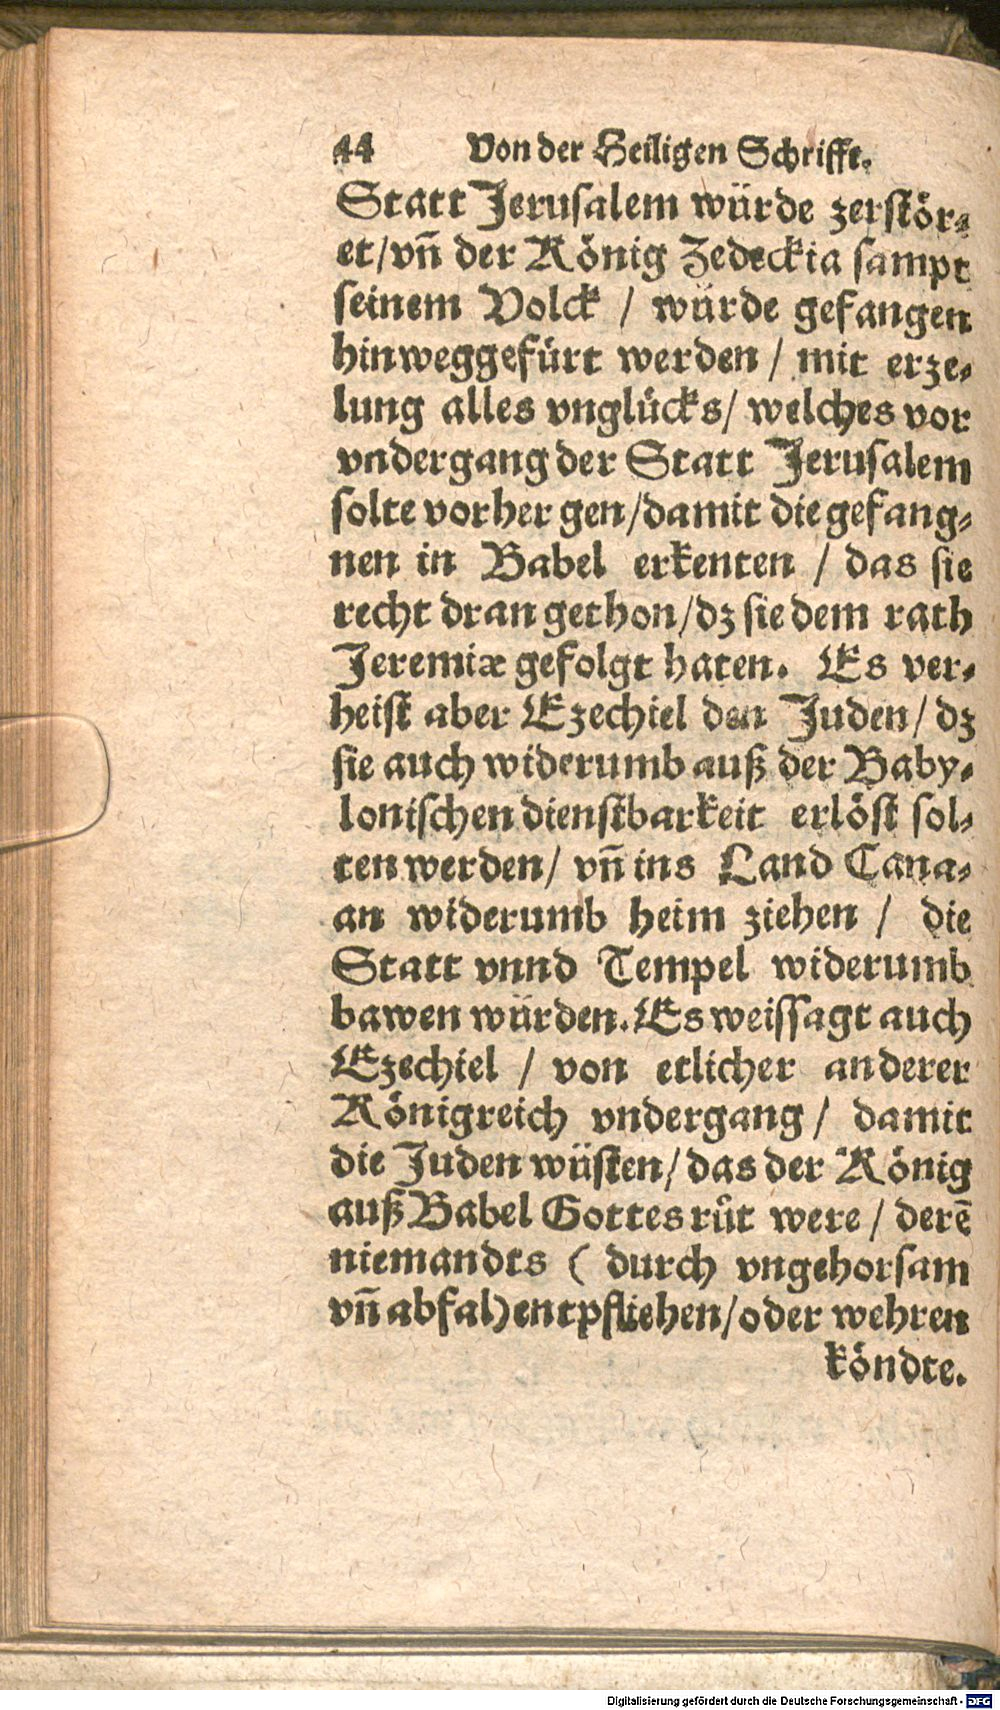 44 Von der Heiligen Schrifft.
Statt Jerusalem würde zerstör-
et/vn̄ der König Zedeckia sampt
seinem Volck / würde gefangen
hinweggefürt werden / mit erze-
lung alles vnglücks/ welches vor
vndergang der Statt Jerusalem
solte vorher gen/damit die gefang-
nen in Babel erkenten / das sie
recht dran gethon/dz sie dem rath
Jeremiæ gefolgt haten. Es ver-
heist aber Ezechiel den Juden/ dz
sie auch widerumb auß der Baby-
lonischen dienstbarkeit erlöst sol-
ten werden/ vn̄ ins Land Cana-
an widerumb heim ziehen / die
Statt vnnd Tempel widerumb
bawen würden. Es weissagt auch
Ezechiel / von etlicher anderer
Königreich vndergang / damit
die Juden wüsten/ das der König
auß Babel Gottes růt were / derē
niemandts ( durch vngehorsam
vn̄ abfal) entpfliehen/oder wehren
köndte.
Digitalisierung gefördert durch die Deutsche Forschungsgemeinschaft - DFG